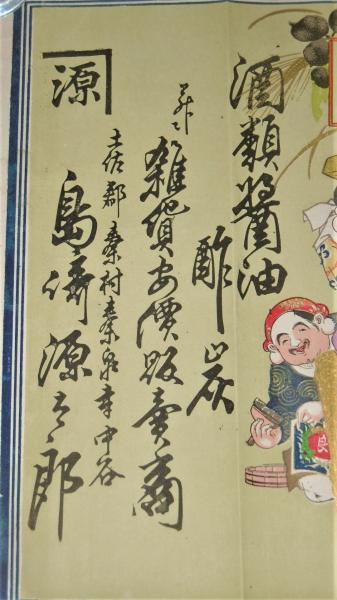 酒類醤油
酢炭
雑貨安價販賣商
土佐郡秦村秦泉寺中谷
島崎源三郎
源
良